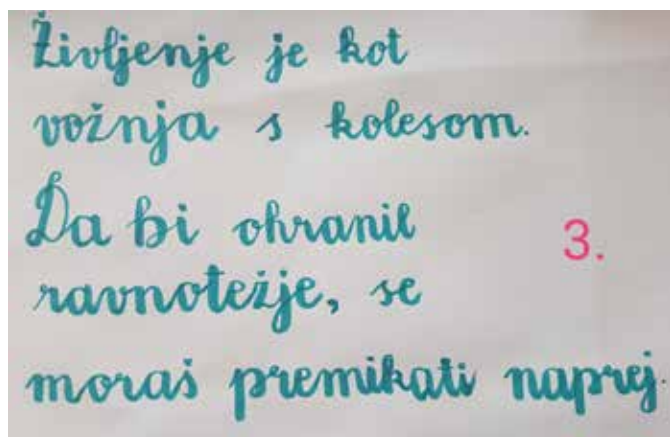 Življenje je kot
vožnja s kolesom.
Da bi ohranil
ravnotežje, se
3.
moraš premikati naprej.